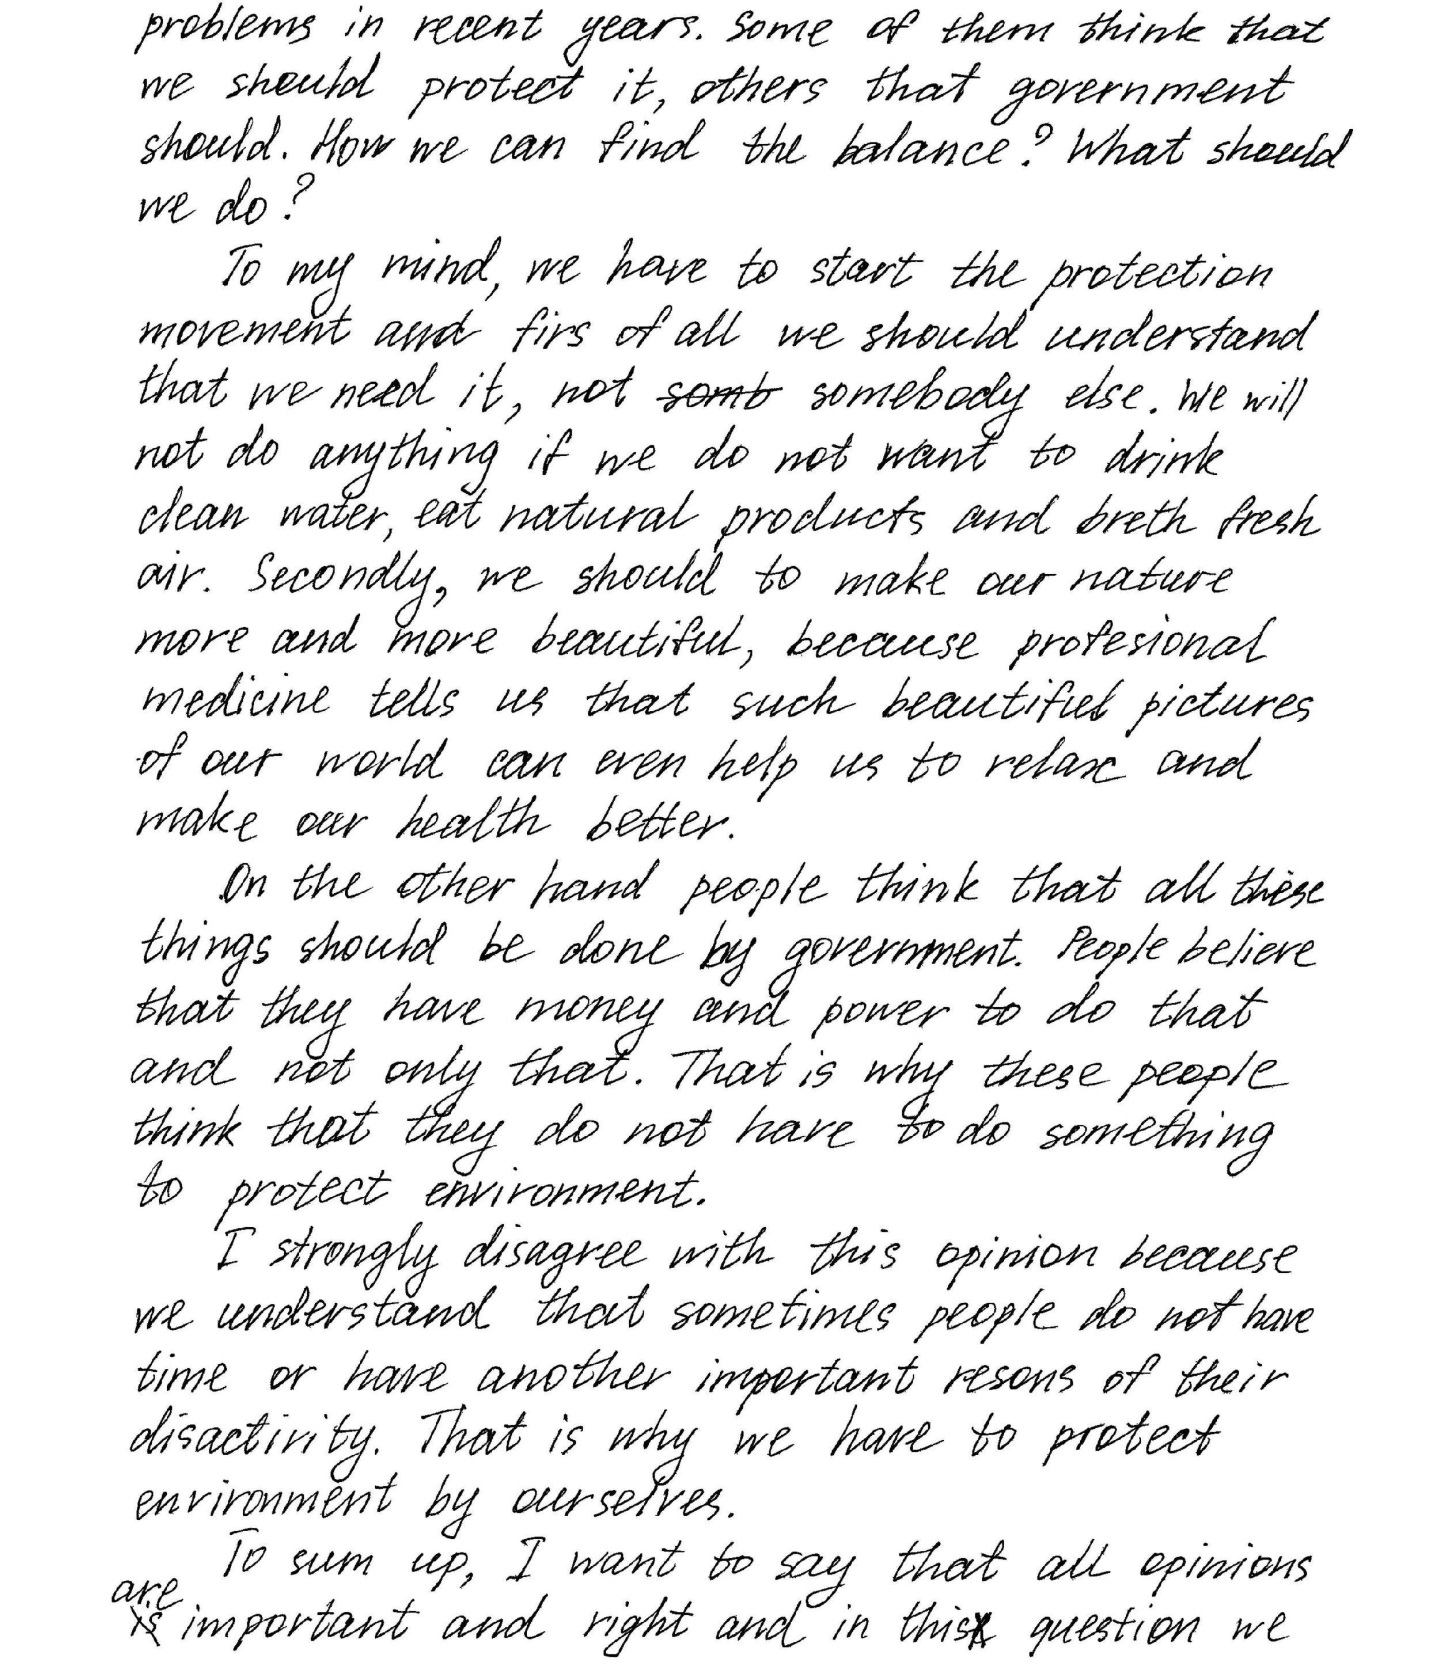 problems in recent years. Some of them think that
we should protect it, others that government
should. How we can find the balance? What should
we do?
To my mind, we have to start the protection
movement and firs of all we should understand
that we need it, not somb somebody else. We will
not do anything if we do not want to drink
clean water, eat natural products and breth fresh
air. Secondly, we should to make our nature
more and more beautiful, because profesional
medicine tells us that such beautiful pictures
of our world can even help us to relax and
make our health better.
On the other hand people think that all these
things should be done by government. People believe
that they have money and power to do that
and not only that. That is why these people
think that they do not have to do something
to protect environment.
I strongly disagree with this opinion because
we understand that sometimes people do not have
time or have another important resons of their
disactivity. That is why we have to protect
environment by ourselves.
To sum up, I want to say that all opinions
are
is important and right and in this question we